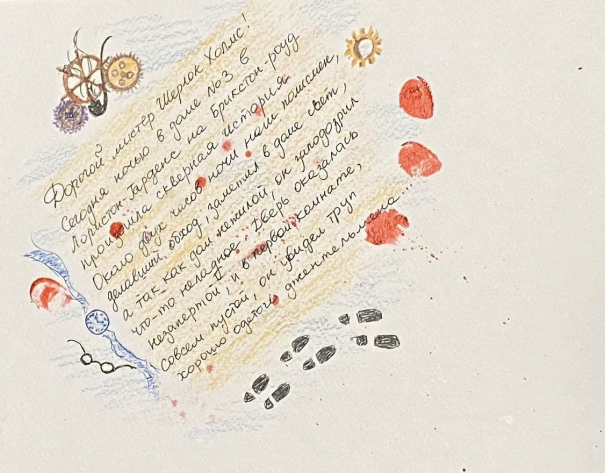 Дорогой мистер Шерлок Холмс!
Сегодня ночью в доме №3 в
Лористон-Гарденс на Брикстон-роуд
произошла скверная история
Около двух часов ночи наш полисмен,
делавший обход, заметил в доме свет,
а так как дом нежилой, он заподозрил
что-то неладное. Дверь оказалась
незапертой, и в первой комнате,
совсем пустой, он увидел труп
хорошо одетого джентельмена...